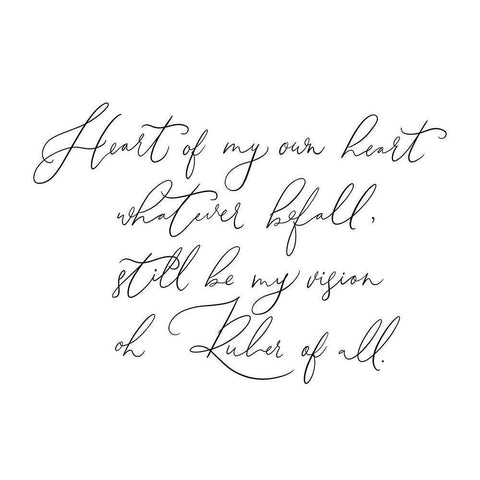 Heart of my own heart
whatever befall,
still be my vision
oh Ruler of all.